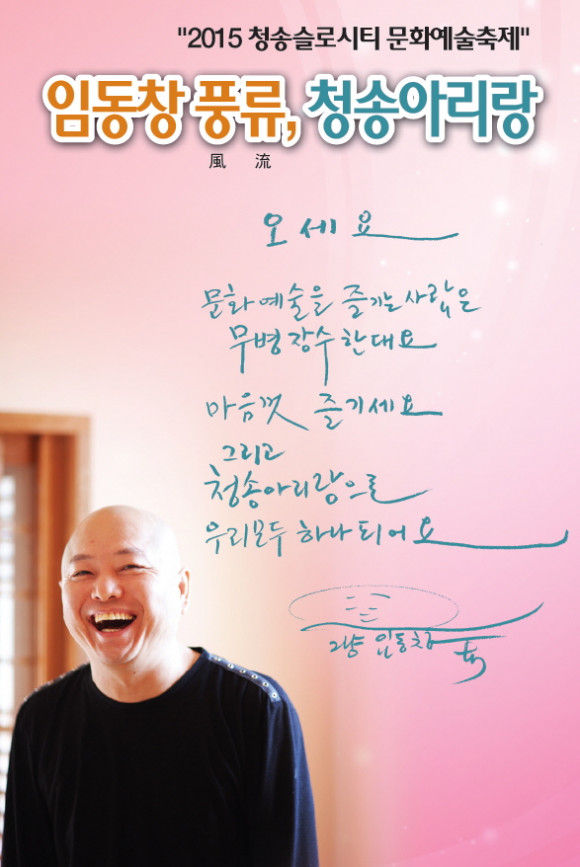 "2015 청송슬로시티 문화예술축제"
임동창 풍류, 청송아리랑
風 流
오세요
문화예술을 즐기는 사람은
무병장수한대요
마음껏 즐기세요
그리고
청송아리랑으로
우리모두 하나되어요
그냥 임동창